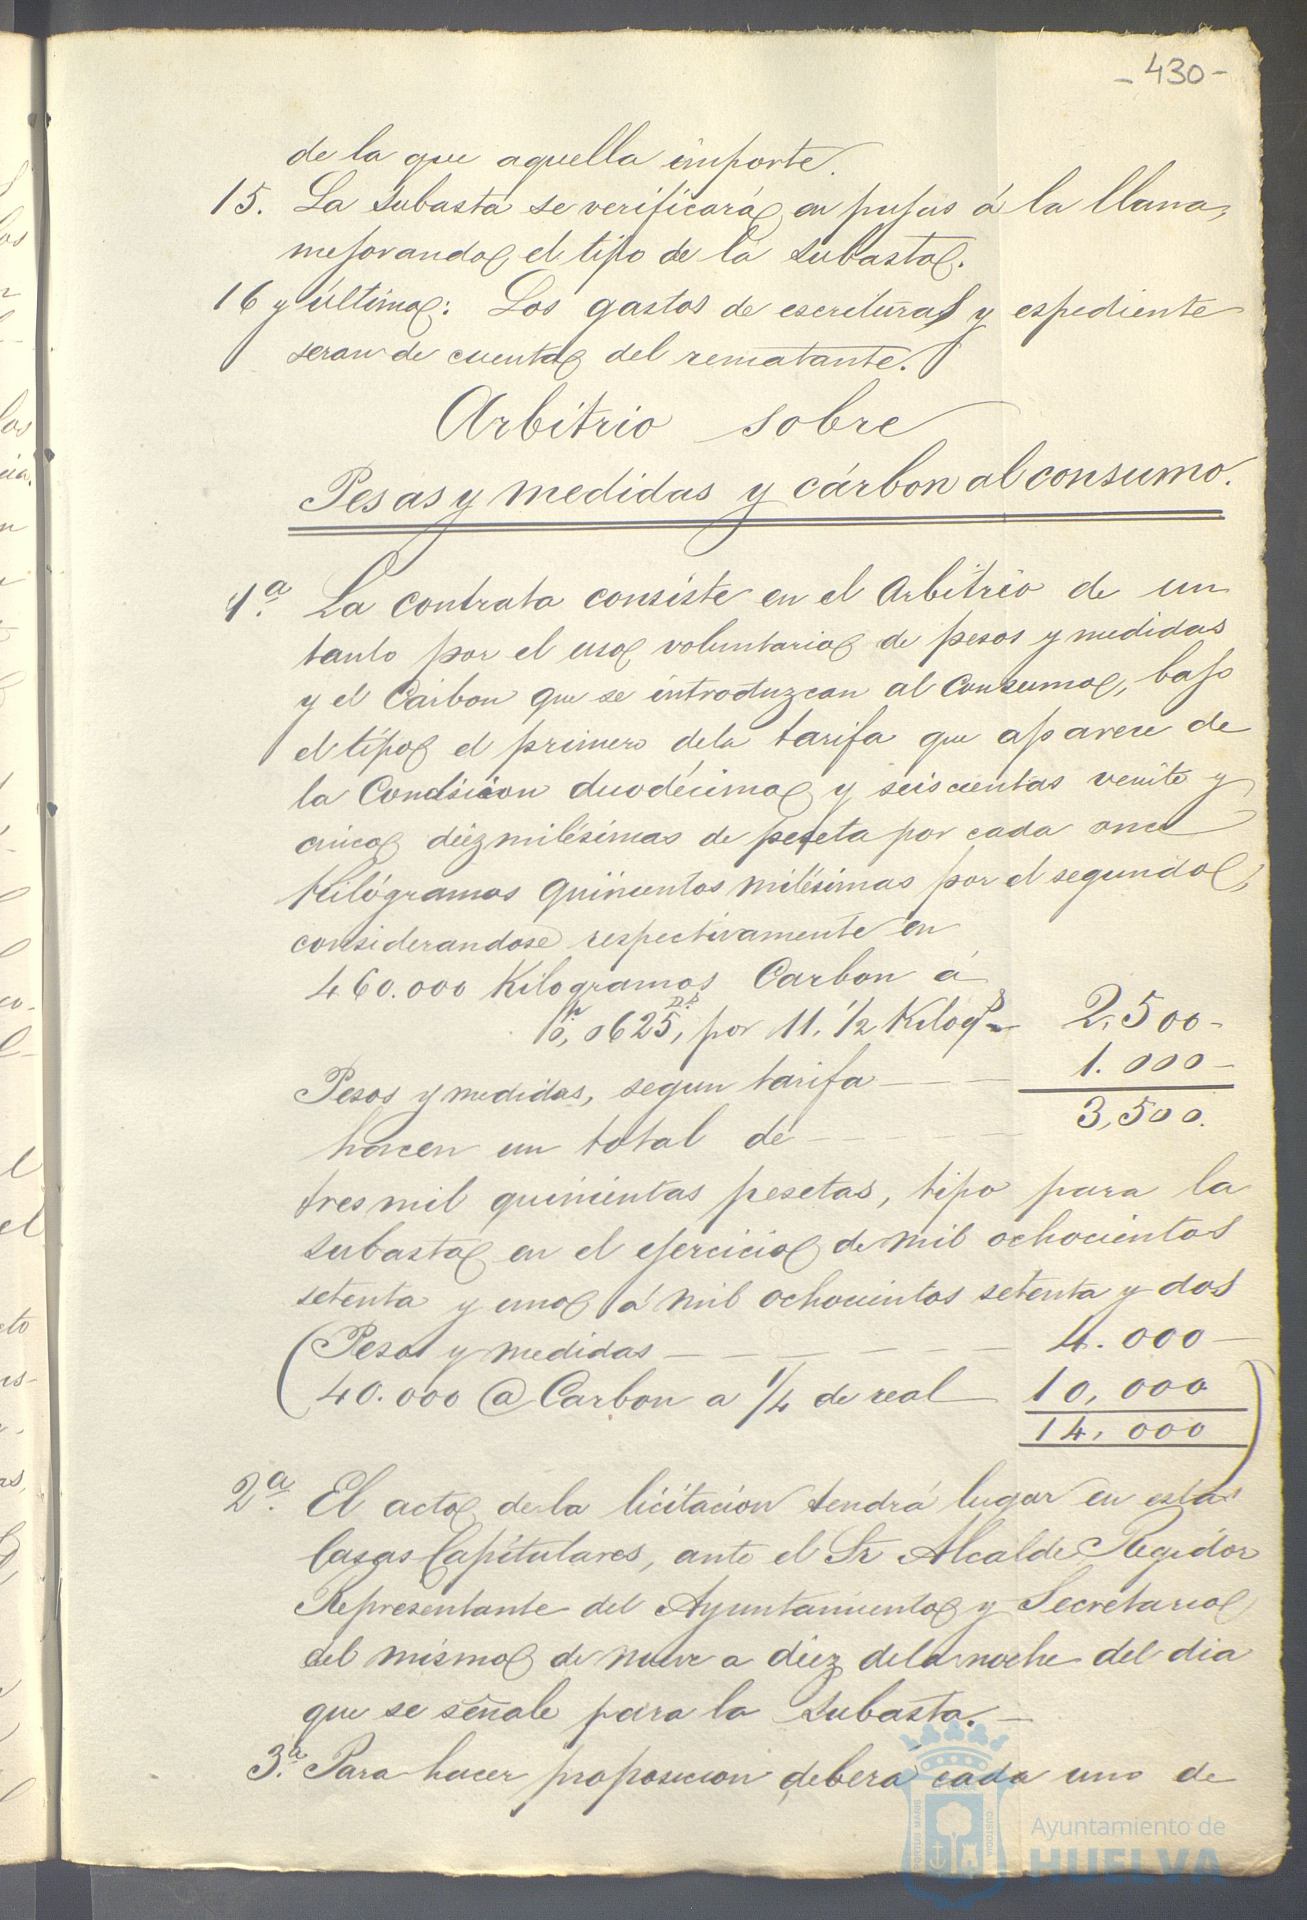 - 430 -
de la que aquella importe.
15. La subasta se verificará en pujas á la llana,
mejorando el tipo de la subasta.
16 y última: Los gastos de escritura y espediente
seran de cuenta del rematante.
Arbitrio sobre
Pesas y medidas y cárbon al consumo.
1ª. La contrata consiste en el Arbitrio de un
tanto por el uso voluntario de pesos y medidas
y el Carbon que se introduzcan al Consumo, bajo
el tipo el primero de la tarifa que aparece de
la Condision duodécima y seiscientas veinte y
cinco diezmilésimas de peseta por cada once
Kilógramos quinientos milésimas por el segundo,
considerandose respectivamente en
460.000 Kilogramos Carbon á
0,0625, por 11.½ Kilogs 2,500-
Pesos y medidas, segun tarifa 1.000-
hacen un total de 3,500.
tres mil quinientas pesetas, tipo para la
subasta en el ejercicio de mil ochocientos
setenta y uno á mil ochocientos setenta y dos
(Peso y medidas 4.000-
40.000 @ Carbon a ¼ de real 10,000
14,000)
2ª. El acto de la licitacion tendrá lugar en estas
Casas Capitulares, ante el Sr Alcalde Regidor
Representante del Ayuntamiento y Secretario
del mismo de nueve a diez de la noche del dia
que se señale para la subasta.
3ª. Para hacer proposicion deberá cada uno de
PORTUS MARIS CUSTODIA
Ayuntamiento de
HUELVA